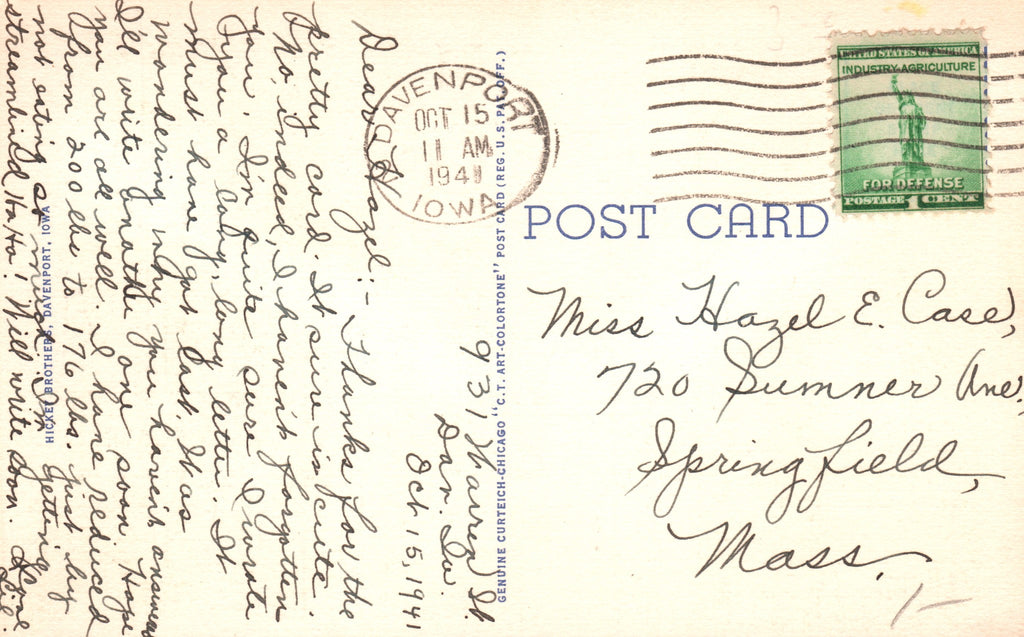 931 Warren St.
Dav. Ia.
Oct. 15, 1941
Dear Hazel:- Thanks for the
pretty card. It sure is cute.
No, indeed, I haven't forgotten
you. I'm quite sure I wrote
you a long, long letter. It
must have got lost. I was
wondering why you haven't answered
I'll write another one soon. Hope
you are all well. I have reduced
from 200 lbs to 176 lbs. just by
not eating so much. I'm getting
streamlined Ha Ha! Will write soon. Love
Lil.
HICKEY BROTHERS, DAVENPORT, IOWA
GENUINE CURTEICH-CHICAGO "C. T. ART-COLORTONE" POST CARD (REG. U. S. PAT. OFF.)
DAVENPORT
OCT 15
11 AM
1941
IOWA
UNITED STATES OF AMERICA
INDUSTRY-AGRICULTURE
FOR DEFENSE
POSTAGE 1 CENT
POST CARD
Miss Hazel E. Case,
720 Sumner Ave.
Springfield,
Mass.
1-